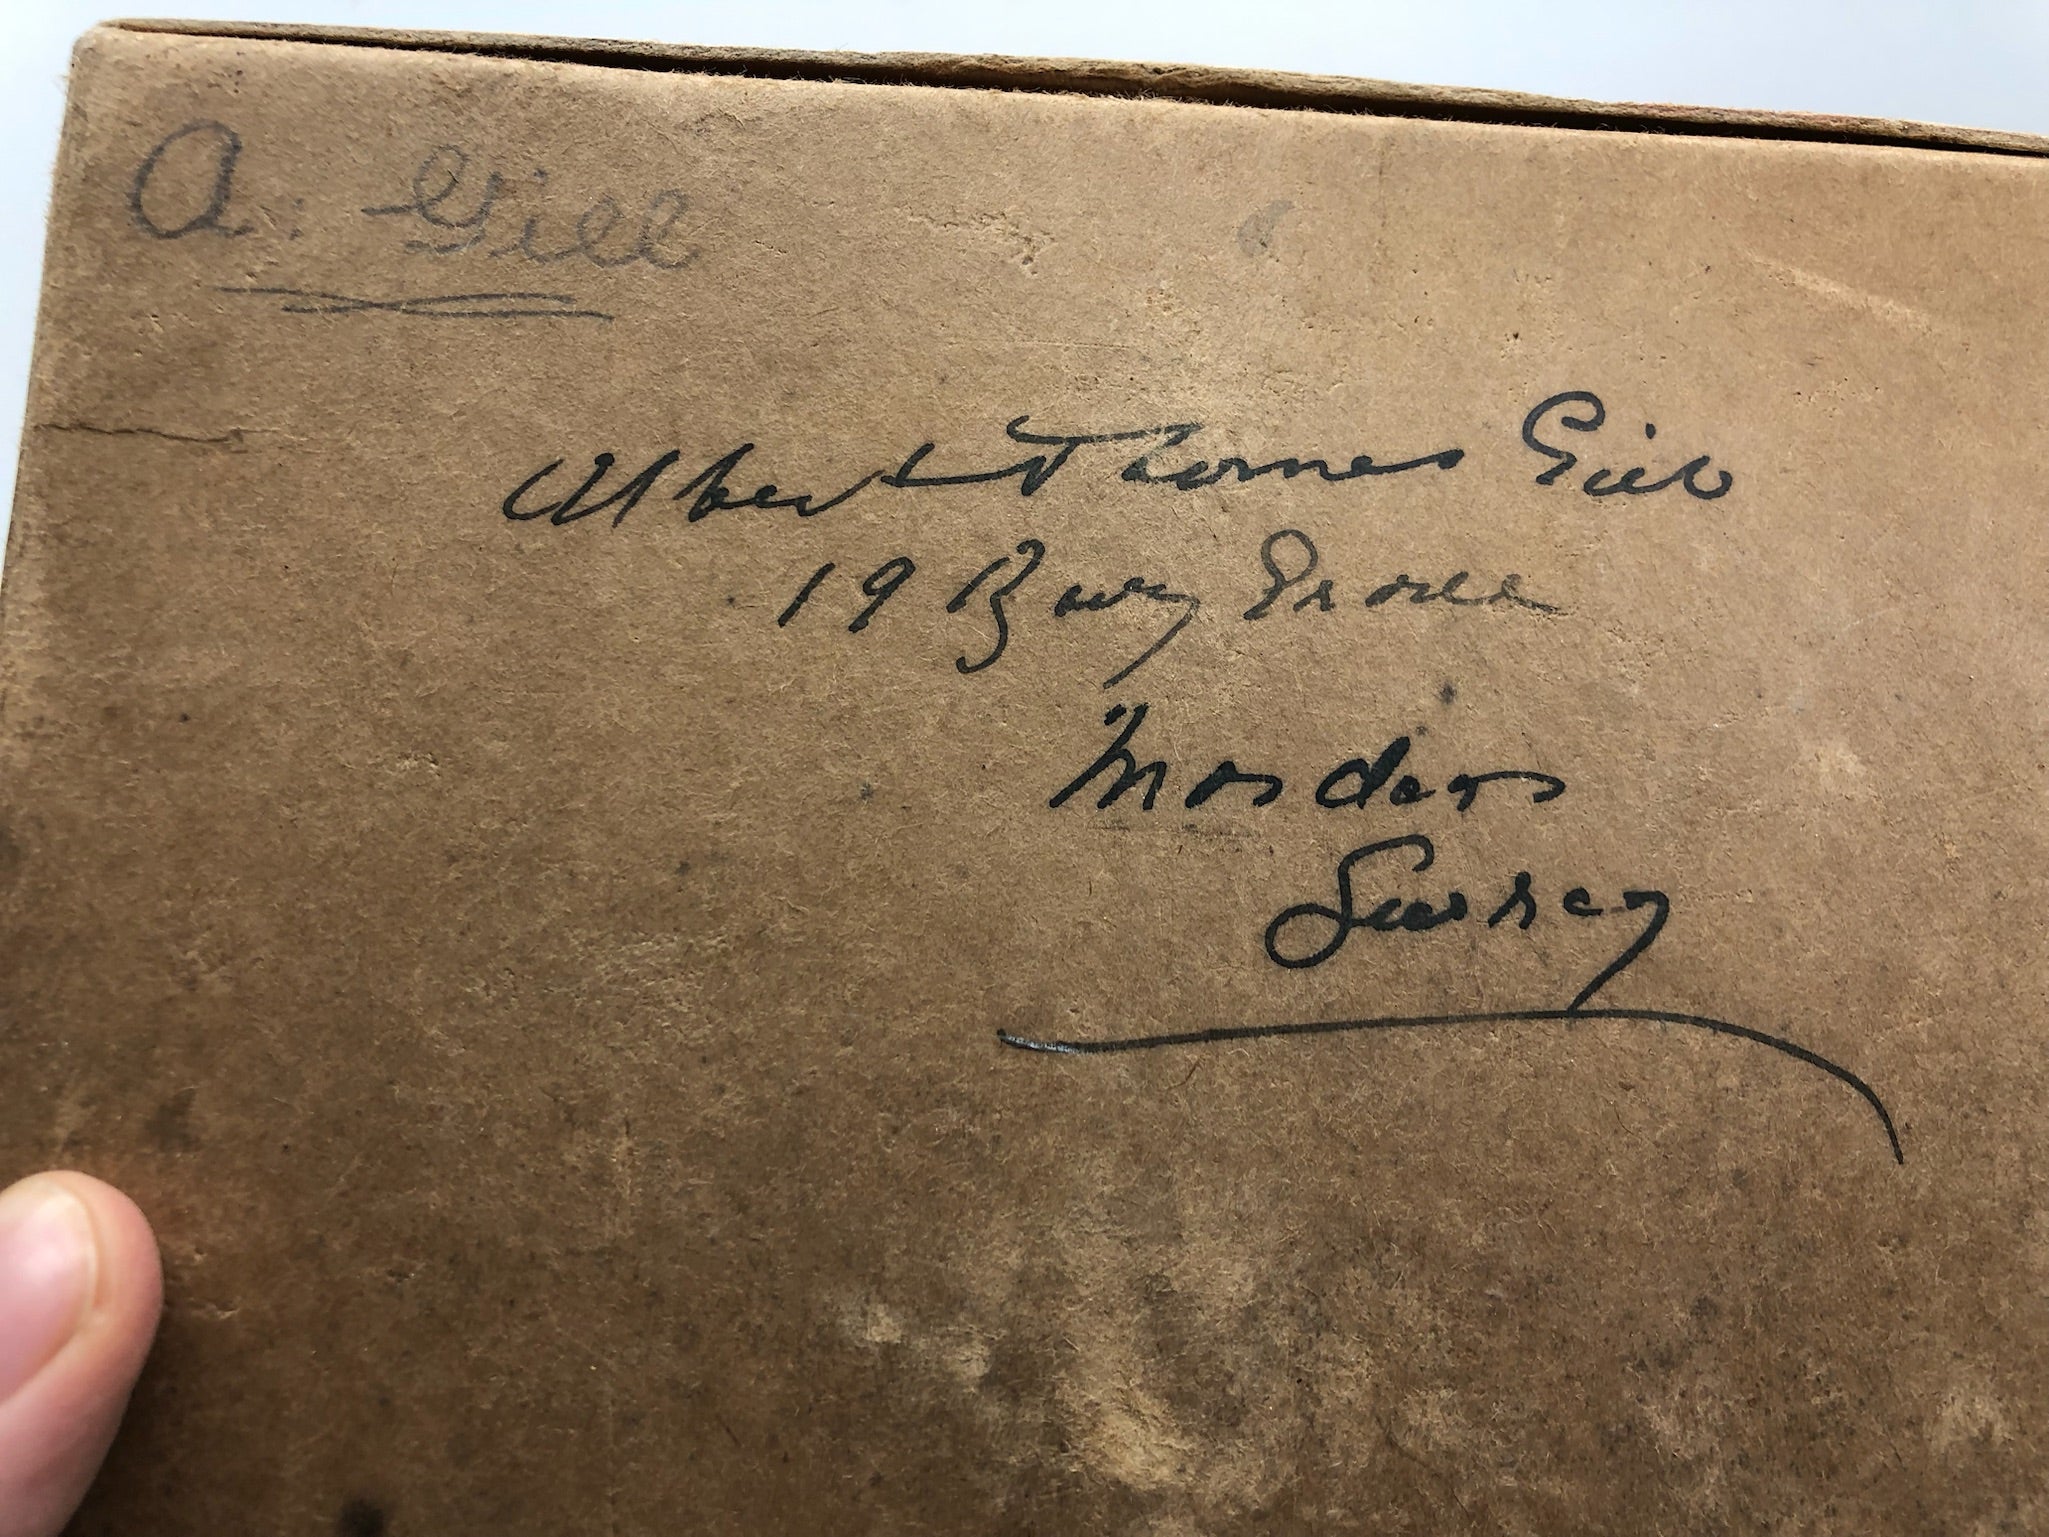 A. Gill
Albert Thomas Gill
19 Bury Grove
Morden
Surrey